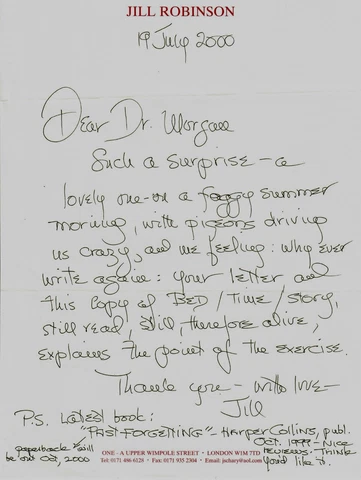 JILL ROBINSON
19 July 2000
Dear Dr. Morgan
Such a surprise - a
lovely one - on a foggy summer
morning, with pigeons driving
us crazy, and me feeling: why ever
write again: your letter and
this copy of BED / TIME / STORY,
still read, still, therefore alive,
explains the point of the exercise.
Thank you - with love -
Jill
P.S. Latest book:
"PAST FORGETTING" - HarperCollins, publ.
Oct. 1999 - Nice
reviews - Think
you'd like it.
paperback will
be out Oct, 2000
ONE - A UPPER WIMPOLE STREET • LONDON W1M 7TD
Tel: 0171 486 6128 • Fax: 0171 935 2304 • Email: